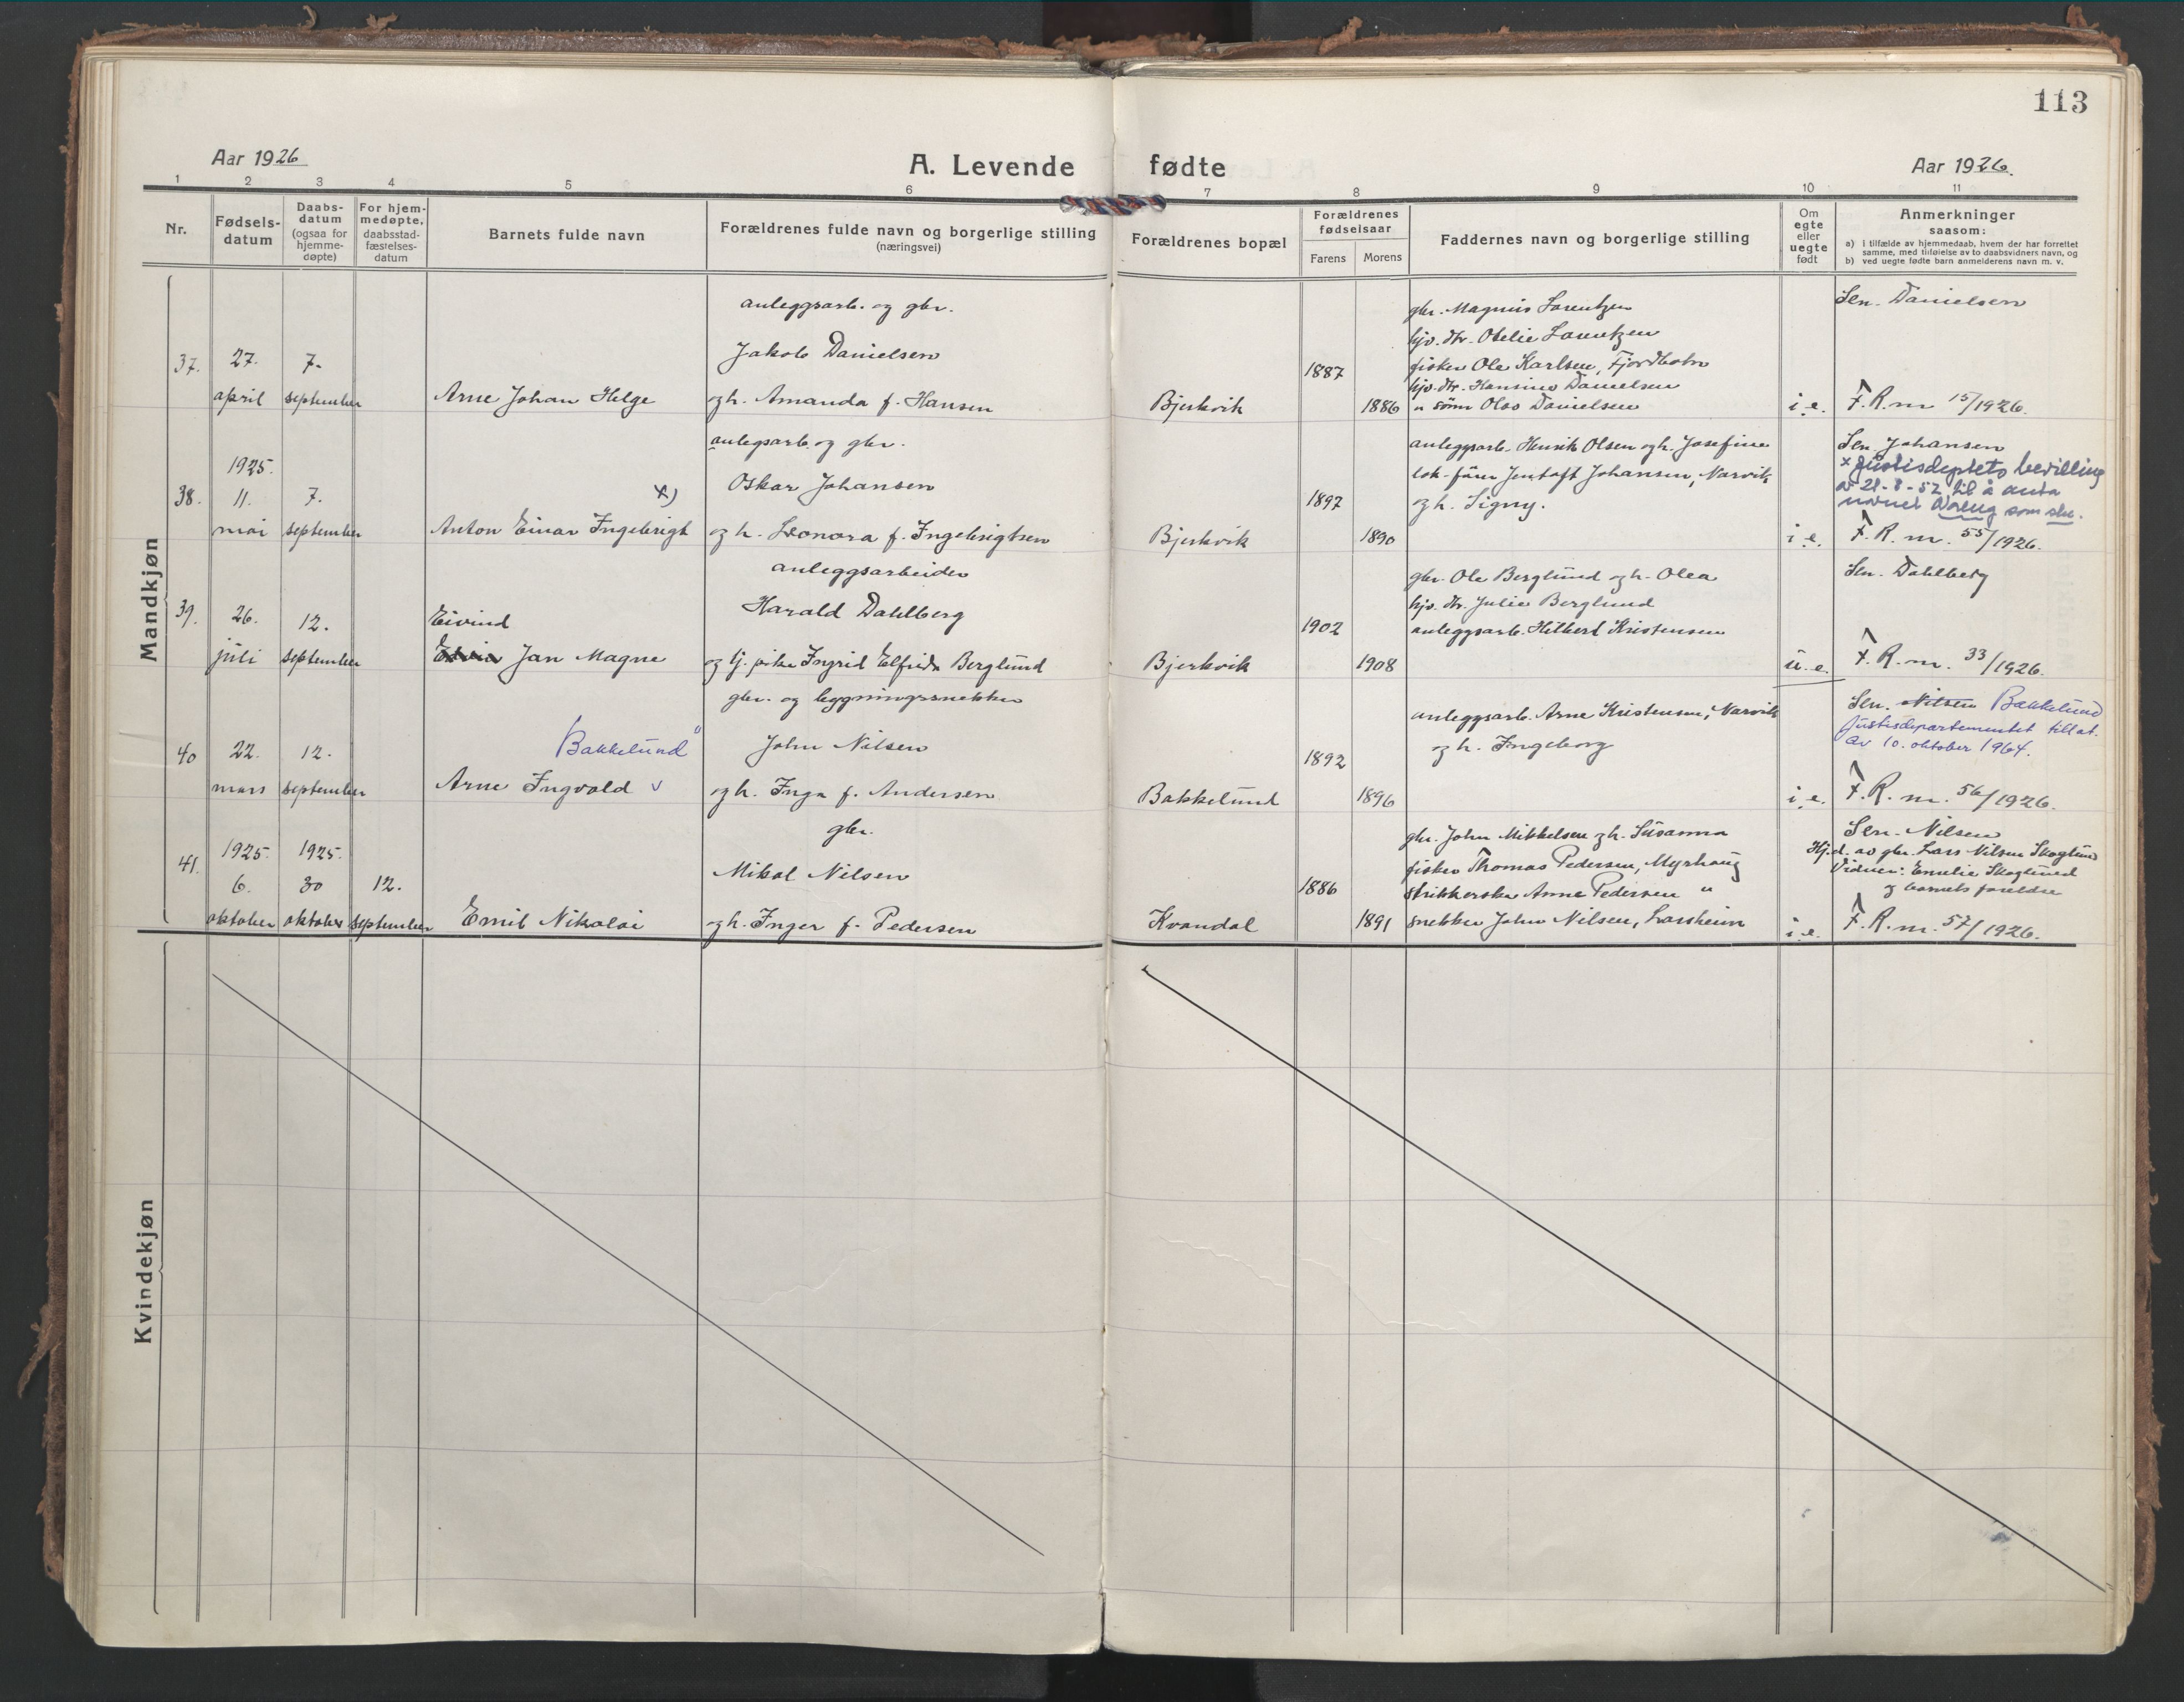 113
Aar 1926
A. Levende fødte
Aar 1926.
1 2 3 4 5 6 7 8 9 10 11
Nr.
Fødsels-
datum
Daabs-
datum
(ogsaa for
hjemme-
døpte)
For hjem-
medøpte,
daabsstad-
fæstelses-
datum
Barnets fulde navn
Forældrenes fulde navn og borgerlige stilling
(næringsvei)
Forældrenes bopæl
Forældrenes
fødselsaar
Farens Morens
Faddernes navn og borgerlige stilling
Om
egte
eller
uegte
født
Anmerkninger
saasom:
a) i tilfælde av hjemmedaab, hvem der har forrettet
samme, med tilføielse av to daabsvidners navn, og
b) ved uegte fødte barn anmelderens navn m. v.
Mandkjøn
37.
27.
april
7.
september
Arne Johan Helge
anleggsarb. og gbr.
Jakob Danielsen
og h. Amanda f. Hansen
Bjerkvik
1887
1886
gbr. Magnus Lorentzen
hjv. dtr. Otelie Lorentzen
fisker Ole Karlsen, Fjordbotn
hjv. dtr. Hansine Danielsen
" sønn Olav Danielsen
i. e.
Sen. Danielsen
F. R. m 15/1926.
38.
1925.
11.
mai
7.
september
x)
Anton Einar Ingebrigt
anlegsarb. og gbr.
Oskar Johansen
og h. Leonora f. Ingebrigtsen
Bjerkvik
1897
1890
anleggsarb. Henrik Olsen og h. Josefine
lok-fører Jentoft Johansen, Narvik
og h. Signy.
i e.
Sen. Johansen
x Justisdeptets bevilling
av 21-8-52 til å anta
navnet som sln.
F. R. m. 55/1926.
39.
26.
juli
12.
september
Eivind
Jan Magne
anleggsarbeider
Harald Dahlberg
og tj. pike Ingrid Elfrida Berglund
Bjerkvik
1902
1908
gbr. Ole Berglund og h. Olea
hjv. dtr. Julie Berglund
anleggsarb. Hilbert Kristensen
u. e.
Sen. Dahlberg
F. R. m. 33/1926.
40
22.
mars
12.
september
Bakkelund"
Arne Ingvald v
gbr. og bygningssnekker
John Nilsen
og h. Inga f. Andersen
Bakkelund
1892
1896
anleggsarb. Arne Kristensen, Narvik
og h. Ingeborg
i. e.
Sen. Nilsen Bakkelund
Justisdepartementet tillat.
av 10. oktober 1964.
F. R. m. 56/1926.
41.
1925.
6.
oktober
1925.
30
oktober
12.
september
Emil Nikolai
gbr.
Mikal Nilsen
og h. Inger f. Pedersen
Kvandal
1886
1891
gbr. John Mikkelsen og h. Susanna
fisker Thomas Pedersen, Myrhaug
strikkerske Anne Pedersen "
snekker John Nilsen, Larsheim
i. e.
Sen. Nilsen
Hj.d. av gbr. Lars Nilsen Skoglund
Vidner: Emelie Skoglund
og barnets foreldre
F. R. m. 57/1926.
Kvindekjøn